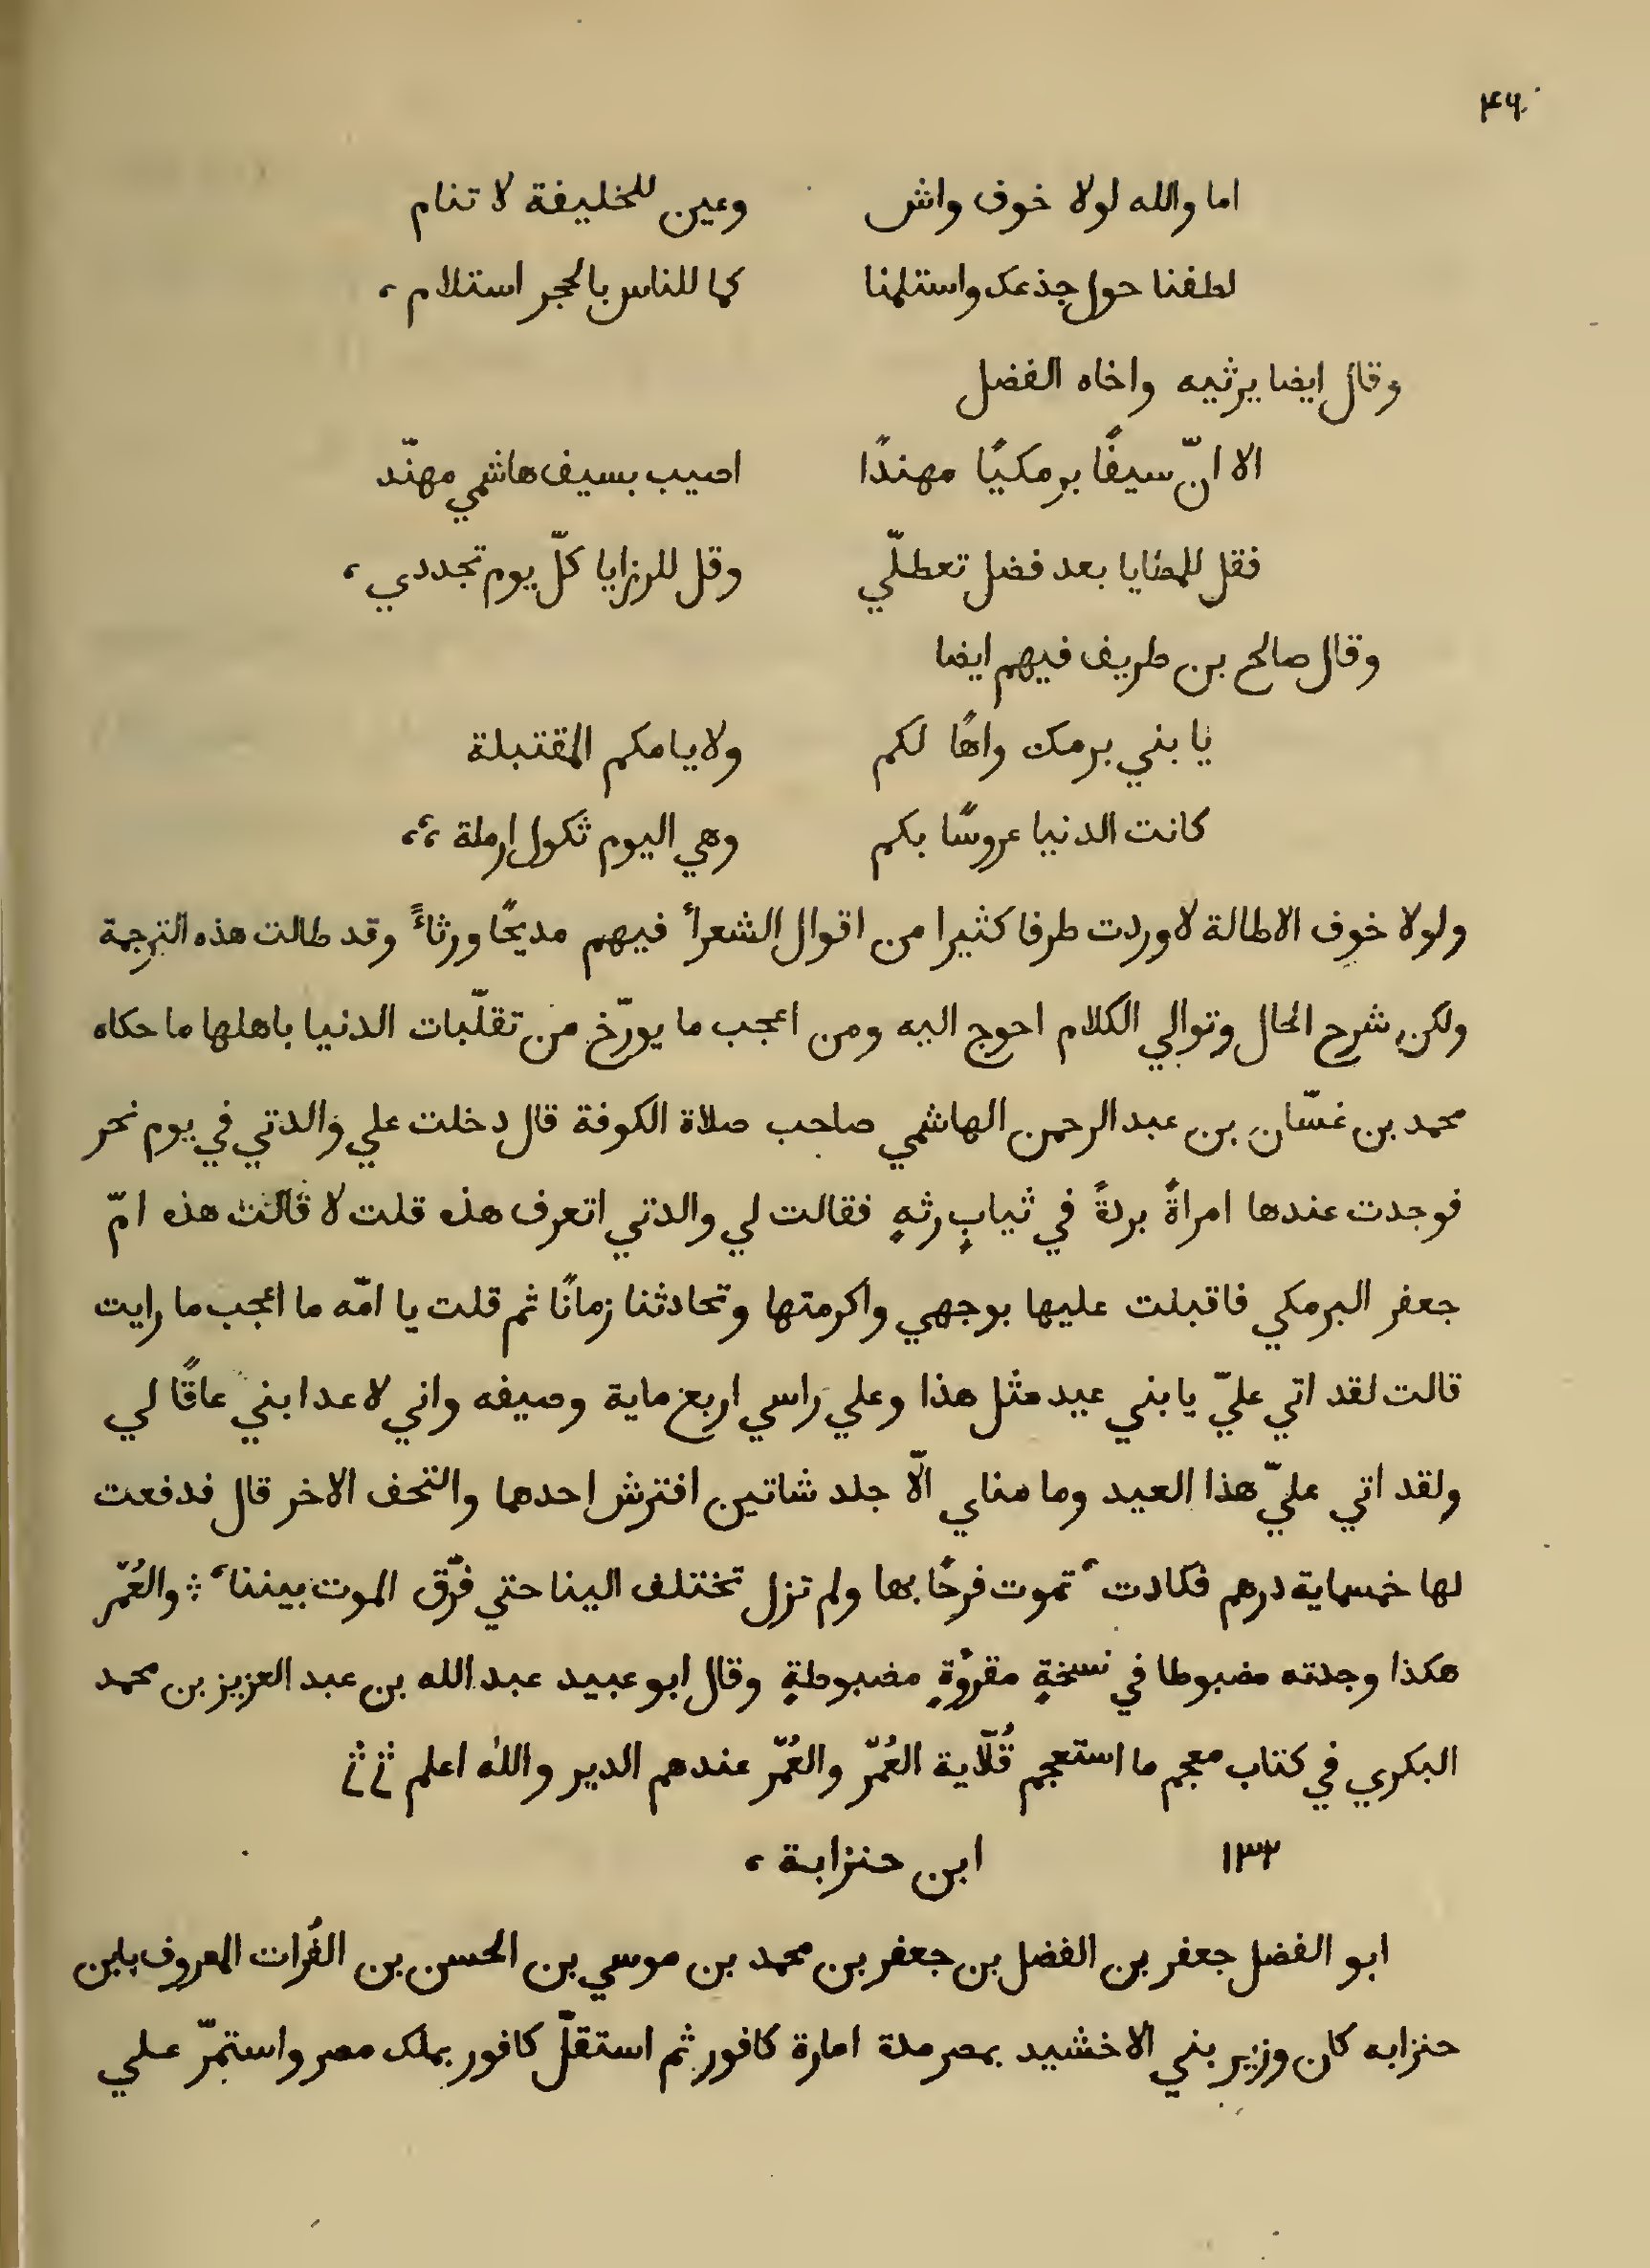 ۴۶
اما والله لولا خوف واش وعين للخليفة لا تنام
لطفنا حول جذعك واستلمنا كما للناس بالحجر استلام ،
وقال ايضا يرثيه واخاه الفضل
الا انّ سيفًا برمكيًا مهندًا اصيب بسيف هاشمي مهنّد
فقل للمطايا بعد فضل تعطلّي وقل للرزايا كلّ يوم تجددي ،
وقال صالح بن طريف فيهم ايضا
يا بني برمك واهًا لكم ولايامكم المقتبلة
كانت الدنيا عروسًا بكم وهي اليوم ثكول ارملة ،،،
ولولا خوف الاطالة لاوردت طرفا كثيرا من اقوال الشعرأ فيهم مديحًا ورثاءً وقد طالت هذه الترجمة
ولكن شرح الحال وتوالي الكلام احوج اليه ومن اعجب ما يورّخ من تقلّبات الدنيا باهلها ما حكاه
محمد بن غسّان بن عبد الرحمن الهاشمي صاحب صلاة الكوفة قال دخلت علي والدتي في يوم نحر
فوجدت عندها امراةً برذةً في ثيابٍ رثهٍ فقالت لي والدتي اتعرف هذه قلت لا قالت هذه امّ
جعفر البرمكي فاقبلت عليها بوجهي واكرمتها وتحادثنا زمانًا ثم قلت يا امّه ما اعجب ما رايت
قالت لقد اتي عليّ يا بني عيد مثل هذا وعلي راسي اربع ماية وصيفه واني لاعد ابني عاقًا لي
ولقد اتي عليّ هذا العيد وما مناي الّا جلد شاتين افترش احدهما والتحف الاخر قال فدفعت
لها خمسماية درهم فكادت تموت فرحًا بها ولم تزل تختلف الينا حتي فرّق الموت بيننا ، والعُمّر
هكذا وجدته مضبوطا في نسخةٍ مقروّةٍ مضبوطةٍ وقال ابو عبيد عبد الله بن عبد العزيز بن محمد
البكري في كتاب معجم ما استعجم قُلّاية العُمّر والعُمّر عندهم الدير والله اعلم
١٣٢ ابن حنزابة ،
ابو الفضل جعفر بن الفضل بن جعفر بن محمد بن موسي بن الحسن بن الفُرات المعروف بابن
حنزابه كان وزير بني الاخشيد بمصر مدة امارة كافور ثم استقلّ كافور بملك مصر واستمرّ علي